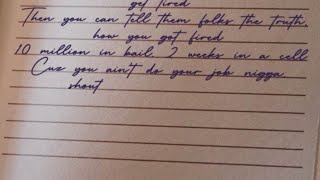 get fired
Then you can tell them folks the truth,
how you got fired
10 million in bail, 2 weeks in a cell
Cuz you ain't do your job nigga
shout